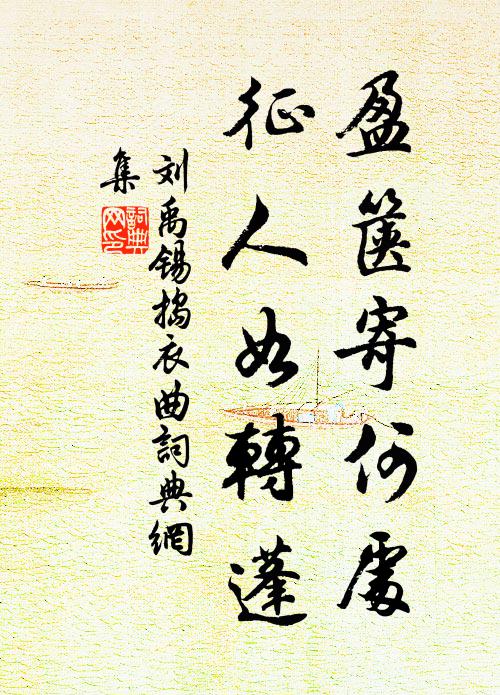 盈篋寄何處
征人如轉蓬
刘禹锡搗衣曲詞典網
集
詞典网印